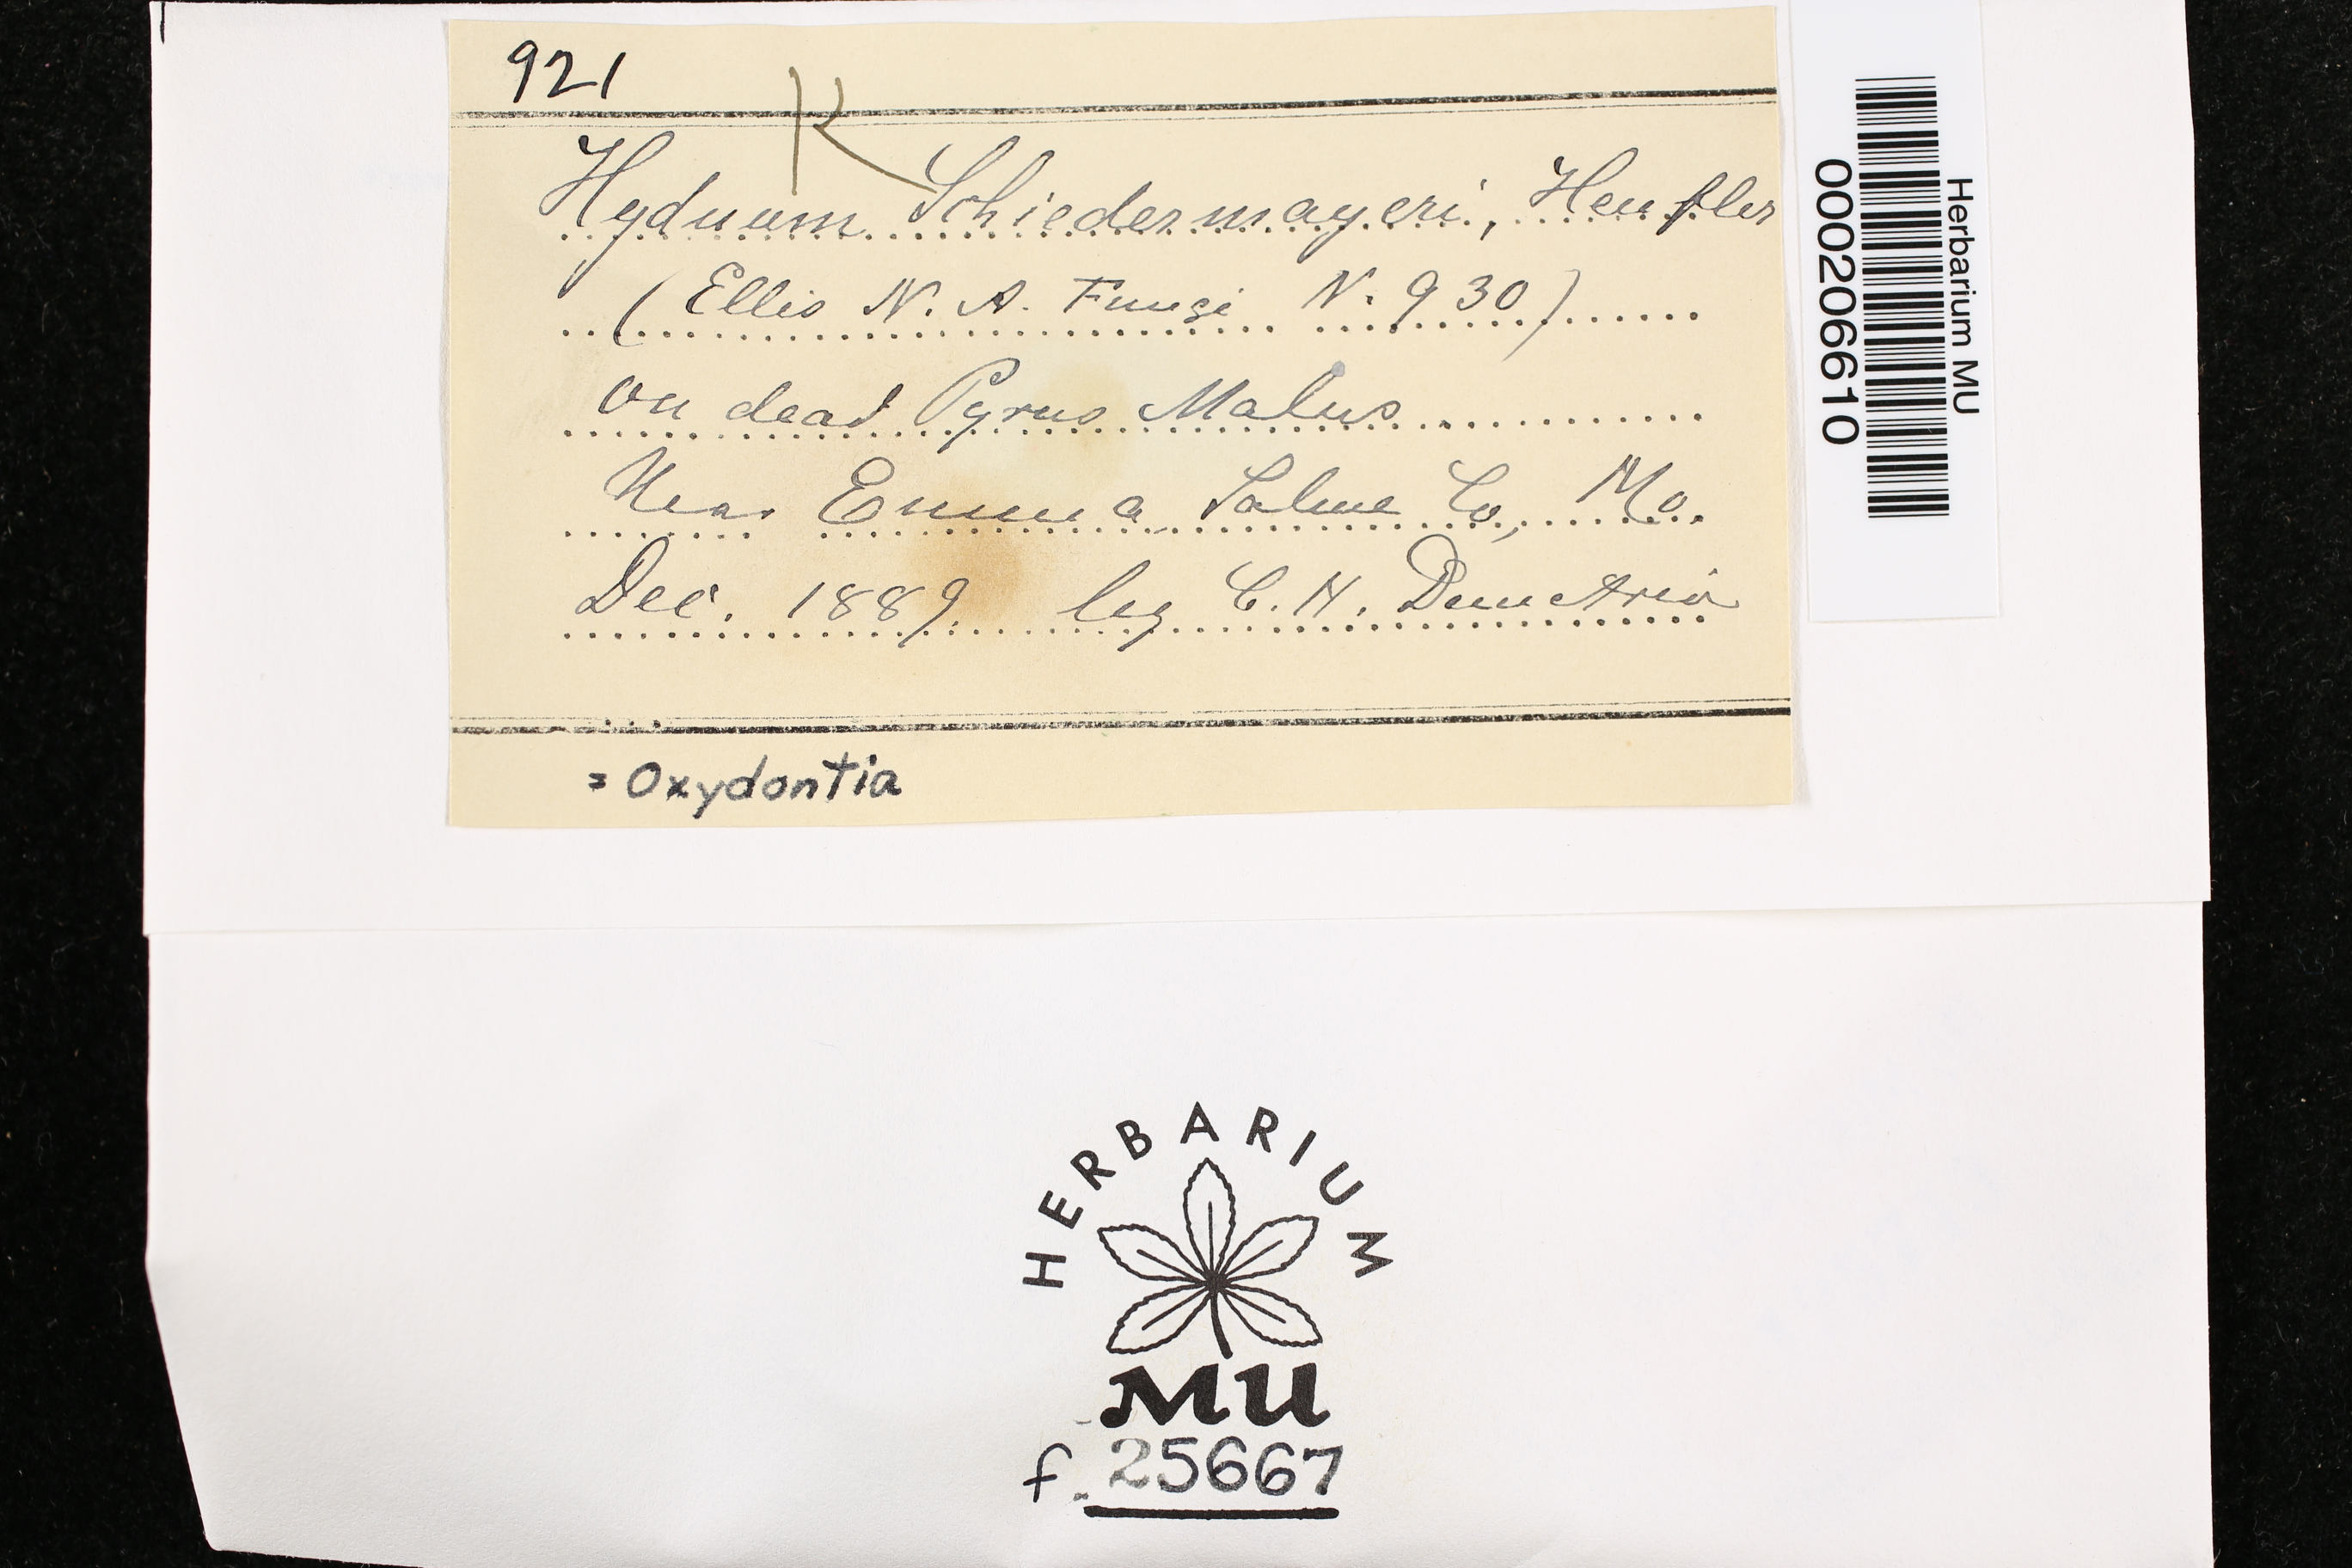 921
K
Hydnum Schiedermayeri, Heufler
(Ellis N. A. Fungi N. 930)
on dead Pyrus Malus
Near Emma Saline Co, Mo.
Dec. 1889. leg C. H. Demetrio
= Oxydontia
Herbarium MU
000206610
HERBARIUM
MU
f. 25667